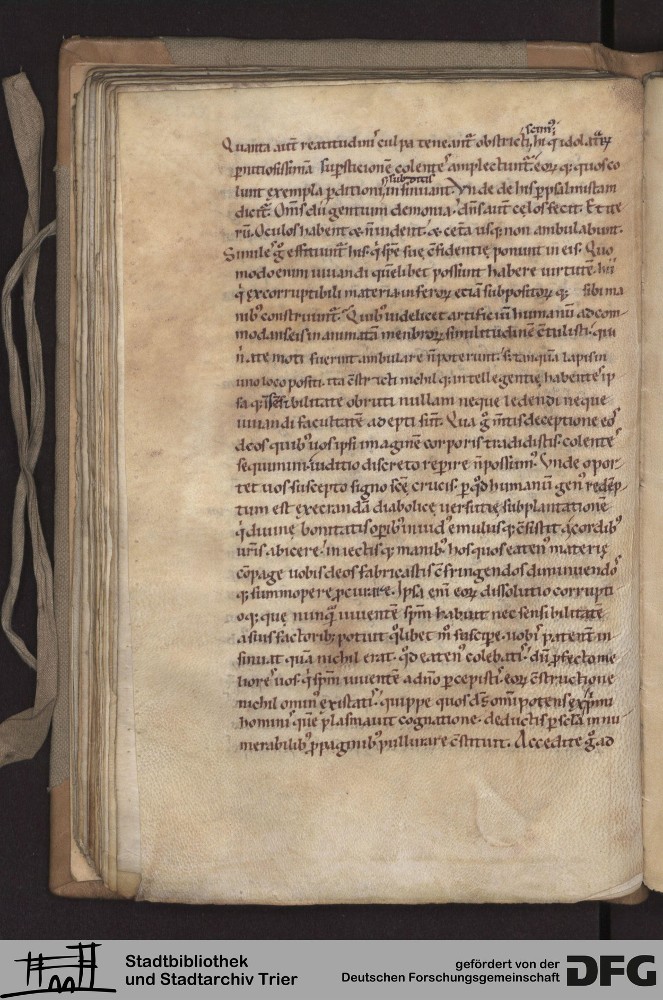 scim᷒
Quanta aut̄ reatitudinis culpa teneant᷑ obstricti, hi q̇ idolatriarꝝ
ꝑnitiosissimā sup̄sticionē colentes amplectunt᷑. eorꝝ q; quos co
lunt exempla ꝑditioni, insinuant. Vnde de his ꝑ psalmistam
dicit᷑. Om̄s dii gentium demonia. dn̄s aut̄ celos fecit. Et ite
rū. Oculos habent & n̄ uident. & cet̄a usq; non ambulabunt.
Similes g̊ efficiunt᷑ his. q̇ spē suę c̄fidentię ponunt in eis. Quo
modo enim uiuandi quēlibet possunt habere uirtutē. hii
q̇ ex corruptibili materia inferorꝝ etiā suppositorꝝ q; sibi ma
nib᷒ construunt᷑. Quib᷒ uidelicet artificiū humanū ad com
modans eis inanimatā menbrorꝝ similitudinē c̄tulisti. qui
n̄ ate moti fuerint ambulare n̄ poterunt. s; tanquā lapis in
uno loco positi. ita c̄stricti nichil q; intellegentię habentes ip
sa q; insensibilitate obruti nullam neque ledendi neque
uiuandi facultatē adepti sunt. Qua g̊ mentis deceptione eos
deos quib᷒ uos ipsi imaginē corporis tradidistis. colentes
sequimini iuditio discreto reperire n̄ possum᷒. Vnde opor
tet uos suscepto signo scē crucis. ꝑ q̊d humanū gen᷒ redēp
tum est ęxecrandā diabolicę uersutię subplantationē
q̇ diuinę bonitatis opib᷒ inuid᷒ emulus q; c̄sistit a cordib᷒
ur̄is abicere. iniectis q; manib᷒ hos quos eaten᷒ materię
cōpage uobis deos fabricastis c̄fringendos diminuendos
q; summopere ꝓcurare. Ipsa eni eorꝝ dissolutio corrupti
oq; que nunquā uiuentē spm̄ habuit nec sensibilitatē
a suis factorib; potuit q̊libet m̊ suscipe. uobis patenter in
sinuat quā nichil erat. q̊d eaten᷒ colebatis. dū ꝓfecto me
liores uos q̇ spm̄ uiuentē a dn̄o percepistis. eorꝝ c̄structione
nichilominus existatis. quippe quos ds̄ omīpotens ex primi
hominis quē plasmauit cognatione. deductis ꝑ scl̄a innu
merabilib᷒ ꝓpaginib᷒ pullurare c̄stituit. Accedite g̊ ad
Stadtbibliothek
und Stadtarchiv Trier
gefördert von der
Deutschen Forschungsgemeinschaft
DFG